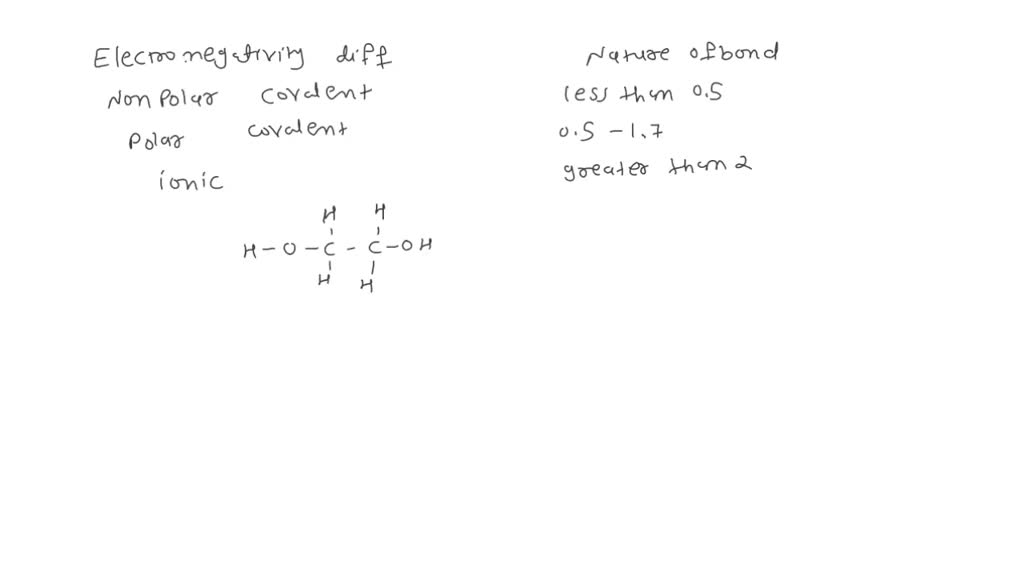 Electronegativity diff Nature of bond
Non Polar covalent less than 0.5
Polar covalent 0.5 - 1.7
ionic greater than 2
H H
H - O - C - C - OH
H H